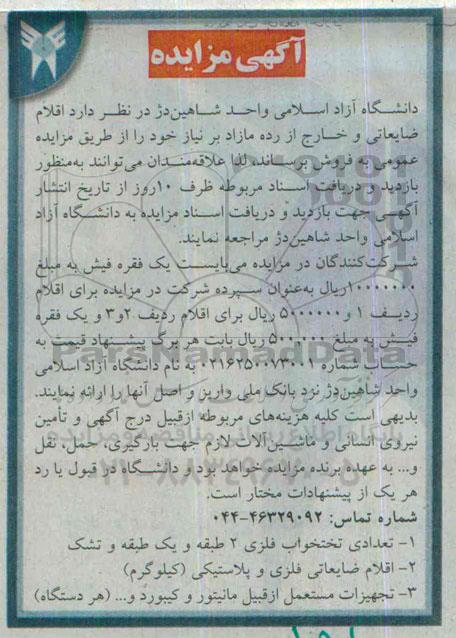 آگهی مزایده
دانشگاه آزاد اسلامی واحد شاهین‌دژ در نظر دارد اقلام
ضایعاتی و خارج از رده مازاد بر نیاز خود را از طریق مزایده
عمومی به فروش برساند، لذا علاقه‌مندان می‌توانند به‌منظور
بازدید و دریافت اسناد مربوطه ظرف ۱۰روز از تاریخ انتشار
آگهی جهت بازدید و دریافت اسناد مزایده به دانشگاه آزاد
اسلامی واحد شاهین‌دژ مراجعه نمایند.
شرکت‌کنندگان در مزایده می‌بایست یک فقره فیش به مبلغ
۱۰۰۰۰۰۰۰ریال به‌عنوان سپرده شرکت در مزایده برای اقلام
ردیف ۱ و ۵۰۰۰۰۰۰ ریال برای اقلام ردیف ۲و۳ و یک فقره
فیش به مبلغ ۵۰۰۰۰۰ ریال بابت هر برگ پیشنهاد قیمت به
حساب شماره ۰۲۱۶۲۵۰۰۷۳۰۰۱ به نام دانشگاه آزاد اسلامی
واحد شاهین‌دژ نزد بانک ملی واریز و اصل آنها را ارائه نمایند.
بدیهی است کلیه هزینه‌های مربوطه ازقبیل درج آگهی و تأمین
نیروی انسانی و ماشین‌آلات لازم جهت بارگیری، حمل، نقل
و... به عهده برنده مزایده خواهد بود و دانشگاه در قبول یا رد
هر یک از پیشنهادات مختار است.
شماره تماس: ۴۶۳۲۹۰۹۲-۰۴۴
۱- تعدادی تختخواب فلزی ۲ طبقه و یک طبقه و تشک
۲- اقلام ضایعاتی فلزی و پلاستیکی (کیلوگرم)
۳- تجهیزات مستعمل ازقبیل مانیتور و کیبورد و... (هر دستگاه)
ParsNamadData